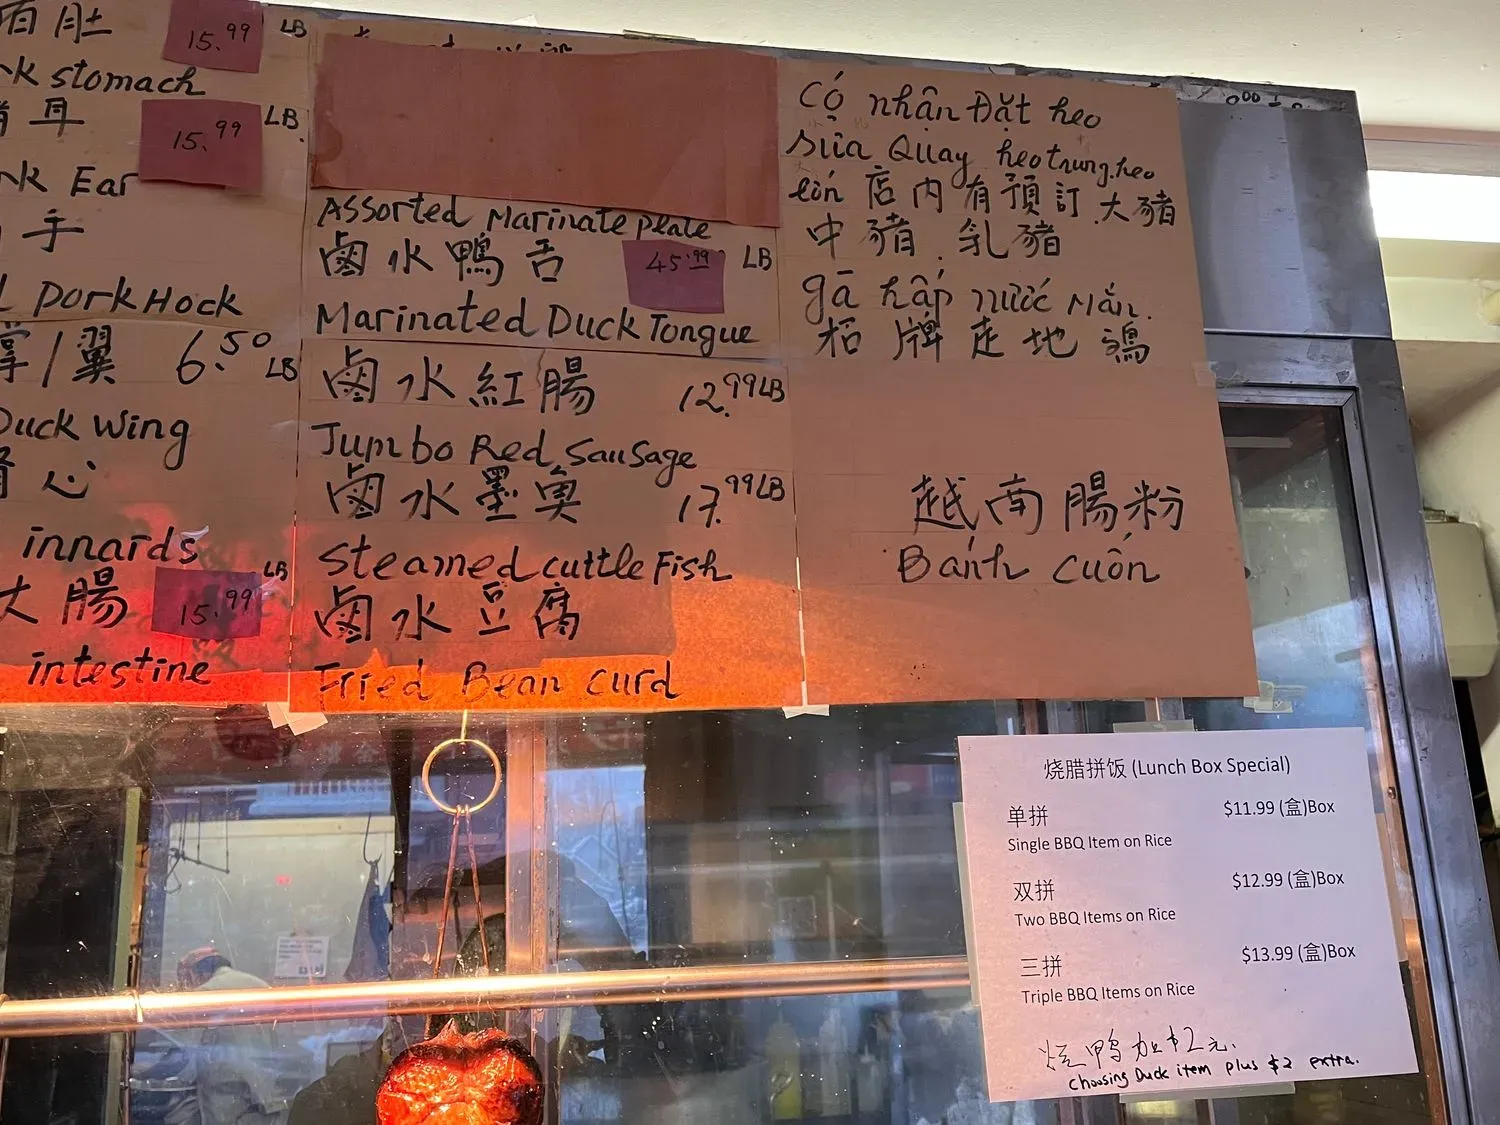 肚 15.99 LB
stomach
耳 15.99 LB
Ear
手
Pork Hock
掌/翼 6.50 LB
Duck Wing
心
innards
大腸 15.99 LB
intestine
Assorted Marinate plate
鹵水鴨舌 45.99 LB
Marinated Duck Tongue
鹵水紅腸 12.99 LB
Jumbo Red Sausage
鹵水墨魚 17.99 LB
Steamed cuttle Fish
鹵水豆腐
Fried Bean curd
Có nhận Đặt heo
sữa Quay heo trung.heo
lớn 店內有預訂.大豬
中豬.乳豬
gà hấp nước Mắn.
招牌走地鷄
越南腸粉
Bánh cuốn
烧腊拼饭 (Lunch Box Special)
单拼 $11.99 (盒)Box
Single BBQ Item on Rice
双拼 $12.99 (盒)Box
Two BBQ Items on Rice
三拼 $13.99 (盒)Box
Triple BBQ Items on Rice
烧鸭加$2元.
choosing Duck item plus $2 extra.